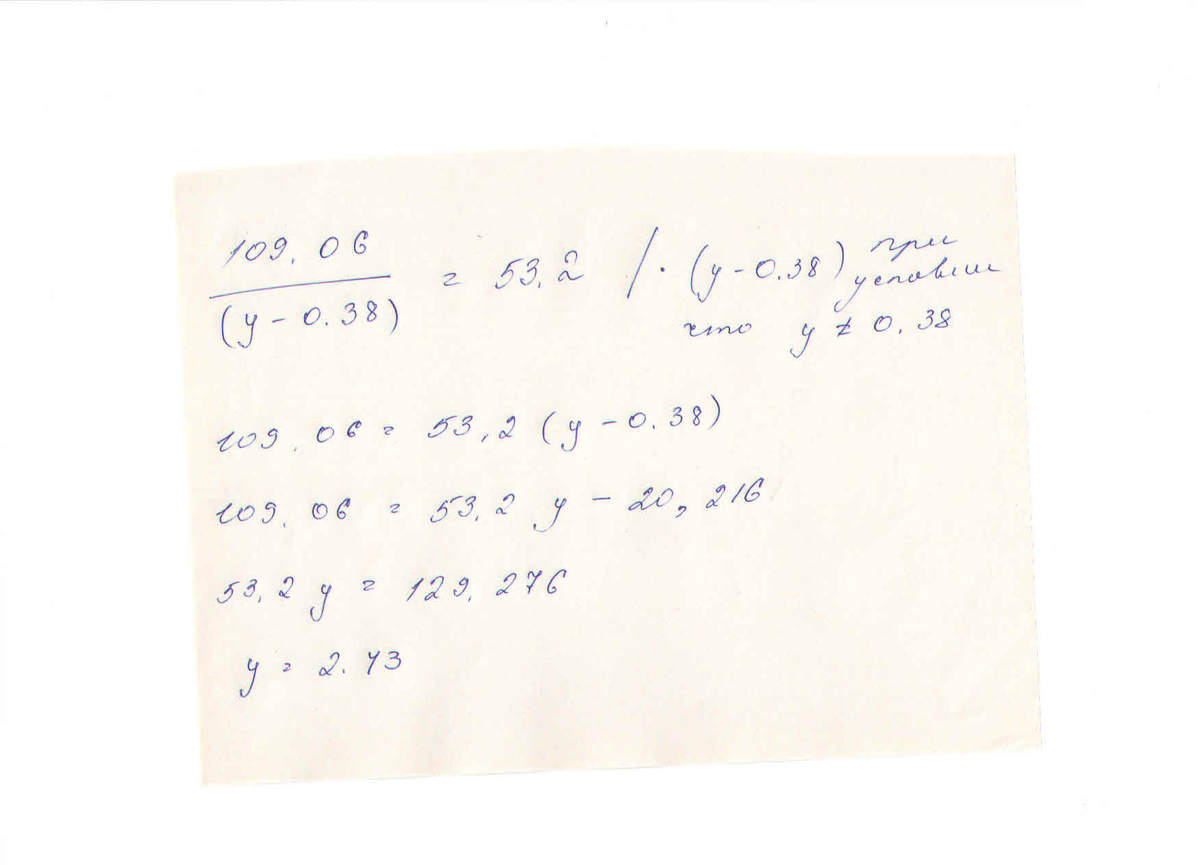 109.06
/ (y - 0.38) = 53.2 / · (y - 0.38) при условии
что y ≠ 0.38
109.06 = 53,2 (y - 0.38)
109.06 = 53.2 y - 20,216
53.2 y = 129.276
y = 2.43